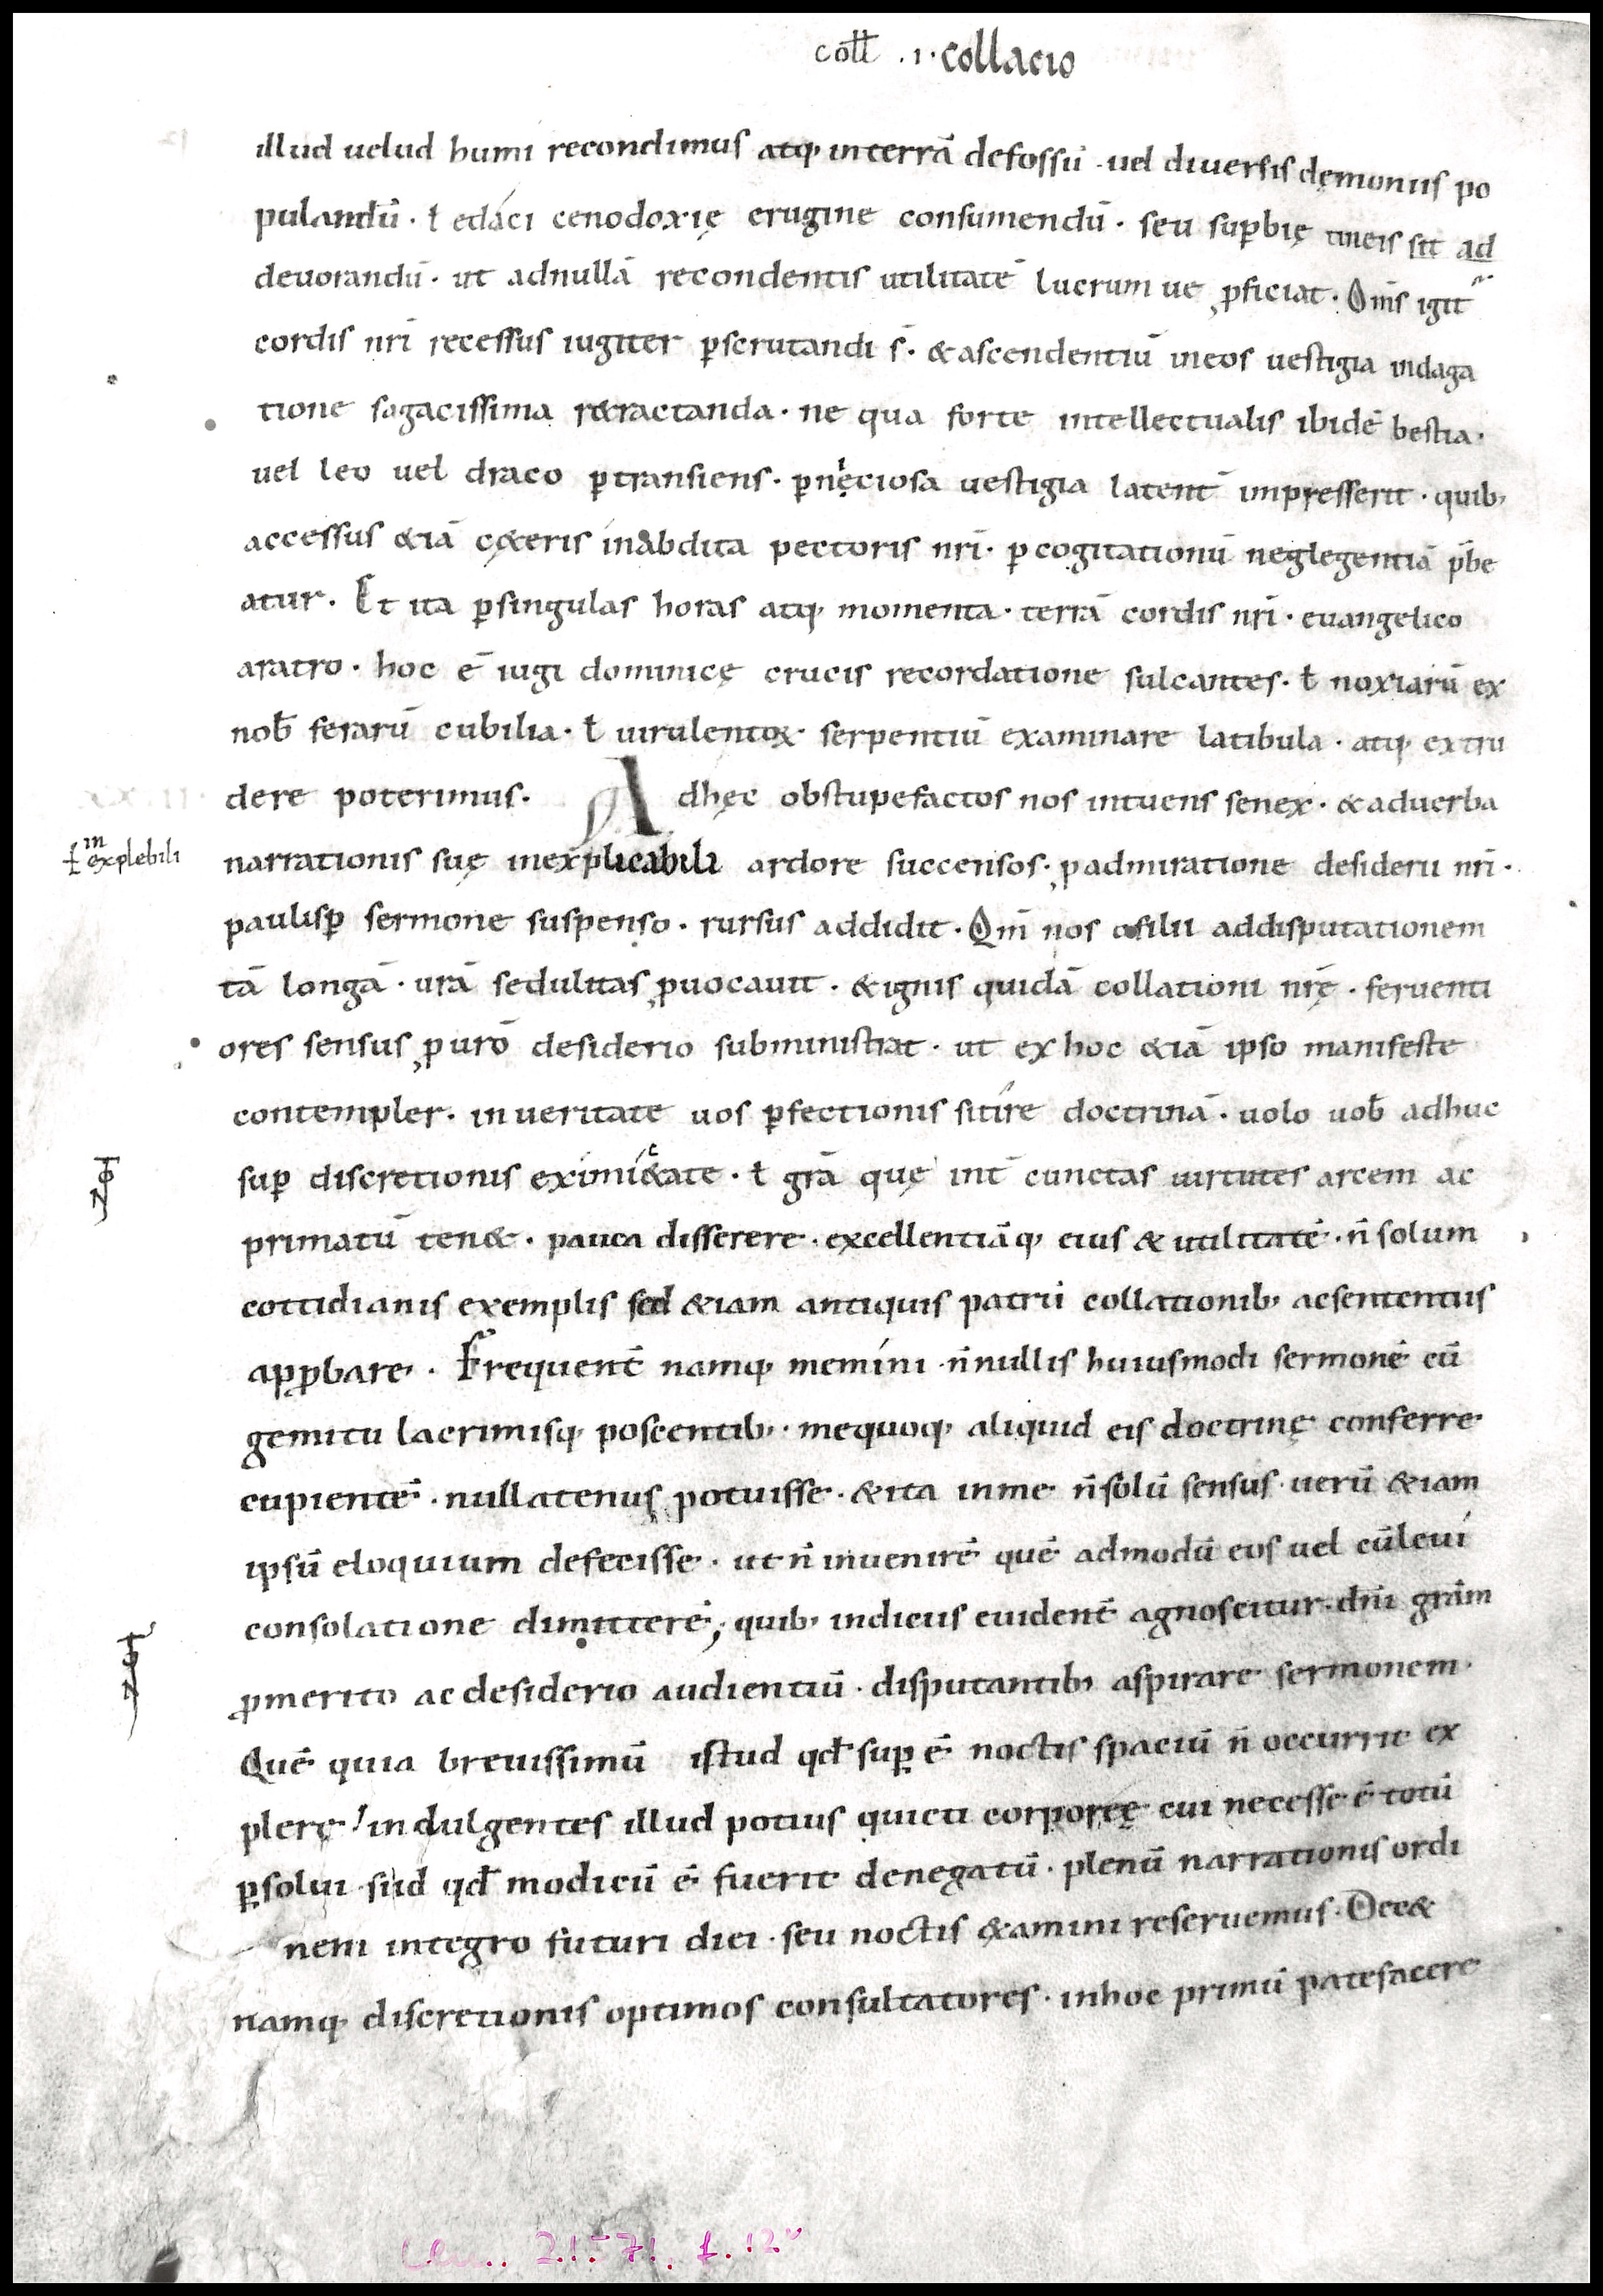 coll̅ .ı. collacio
illud uelud humi recondimus atq; interrā defossū · uel diuersis dęmoniis po
pulandū · ł edáci cenodoxię erugine consumendū · seu sup̱bię tineis sit ad
deuorandū · ut adnullā recondentis utilitatē lucrum ue ꝓficiat · Om̄s igit᷑
cordis nr̄i recessus iugiter ꝑscrutandi s̄ · & ascendentiū ineos uestigia indaga
tione sagacissima r&ractanda · ne qua forte intellectualis ibidē bestia ·
uel leo uel draco ꝑtransiens · ꝑnęciosa uestigia latent̄ impresserit · quib;
accessus &iā cę&eris inabdita pectoris nr̄i · ꝑ cogitationū neglegentiā p̄be
atur · Et ita ꝑsingulas horas atq; momenta · terrā cordis nr̄i · euangelico
aratro · hoc ē iugi dominicę crucis recordatione sulcantes · ł noxiarū ex
nob̄ ferarū cubilia · ł uirulentoꝝ serpentiū examinare latibula · atq; extru
dere poterimus · Adhęc obstupefactos nos intuens senex · & aduerba
ł in explebili
narrationis suę inexplicabili ardore succensos · ꝓadmiratione desiderii nr̄i ·
paulisꝑ sermone suspenso · rursus addidit · Qm̄ nos o filii addisputationem
tā longā · ur̄ā sedulitas ꝓuocauit · & ignis quidā collationi nr̄ę · feruenti
ores sensus ꝓ uro̅ desiderio subministrat · ut ex hoc &iā ipso manifeste
contempler · in ueritate uos ꝑfectionis sitíre doctrinā · uolo uob̄ adhuc
suꝑ discretionis eximi&ate · ł gr̄a quę int̄ cunctas uirtutes arcem ac
primatū ten& · pauca disserere · excellentiāq; eius & utilitatē · n̄ solum
cottidianis exemplis sed &iam antiquis patrū collationib; acsententiis
apꝓbare · Frequent̄ namq; memíni · n̄nullis huiusmodi sermonē cū
gemitu lacrimisq; poscentib; · mequoq; aliquid eis doctrinę conferre
cupientē · nullatenus potuisse · & ita inme n̄solū sensus · uerū &iam
ipsū eloquium defecisse · ut n̄ inuenirē quē admodū eos uel cūleuí
consolatione dimitterē; quib; indiciis euident̄ agnoscitur · dn̄i gr̄am
ꝓmerito ac desiderio audientiū · disputantib; aspirare sermonem ·
Quē quia breuissimū istud qd̄ suꝑ ē noctis spaciū n̄ occurrit ex
plerę indulgentes illud potius quieti corporeę cui necesse ē totū
ꝑsolui · siid qd̄ modicū ē fuerit denegatū · plenū narrationis ordi
nem integro futuri diei · seu noctis ęxamini reseruemus · Dec&
namq; discretionis optimos consultatores · inhoc primū patefacere
21571, f. 12v